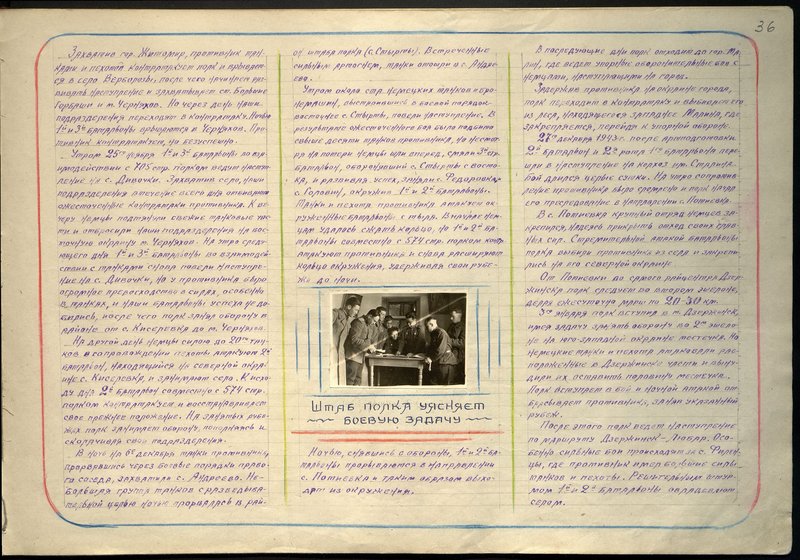 36
Захватив гор. Житомир, противник тан-
ками и пехотой контратакует полк и прорывает-
ся в село Вербовозы, после чего начинает раз-
вивать наступление и захватывает ст. Большие
Горбаши и м. Черняхов. Но через день наши
подразделения переходят в контратаку. Ночью
1й и 3й батальоны врываются в Черняхов. Про-
тивник контратакует, но безуспешно.
Утром 25го ноября 1й и 3й батальоны во взаи-
модействии с 705 стр. полком ведут наступ-
ление на с. Дивочки. Захватив село, наши
подразделения в течение всего дня отбивают
ожесточенные контратаки противника. К ве-
черу немцы подтянули свежие танковые час-
ти и отбросили наши подразделения на вос-
точную окраину м. Черняхов. На утро следу-
ющего дня 1й и 3й батальоны во взаимодей-
ствии с танками снова повели наступле-
ние на с. Дивочки, но у противника было
огромное превосходство в силах, особенно
в танках, и наши батальоны успеха не до-
бились, после чего полк занял оборону в
районе от с. Киселевка до м. Черняхов.
На другой день немцы силою до 20ти тан-
ков в сопровождении пехоты атакуют 2й
батальон, находящийся на северной окраи-
не с. Киселевка и занимают село. К исхо-
ду дня 2й батальон совместно с 574 стр.
полком контратакует и восстанавливает
свое прежнее положение. На занятых рубе-
жах полк занимает оборону, пополняясь и
сколачивая свои подразделения.
В ночь на 6е декабря танки противника,
прорвавшись через боевые порядки право-
го соседа, захватили с. Андреево. Не-
большая группа танков с разведыва-
тельной целью ночью прорвалась в рай-
он штаба полка (с. Стырты). Встреченные
сильным артогнем, танки отошли в с. Андре-
ево.
Утром около ста немецких танков и бро-
немашин, выстроившись в боевой порядок
восточнее с. Стырты, повели наступление. В
результате ожесточенного боя было подбито
свыше десяти танков противника, но несмот-
ря на потери немцы шли вперед, смяли 3й стр.
батальон, оборонявший с. Стырты с восто-
ка, и развивая успех, заняли с. Федоровка и
с. Головин, окружив 1й и 2й батальоны.
Танки и пехота противника атакуют ок-
руженные батальоны с тыла. Вначале нем-
цам удалось сжать кольцо, но 1й и 2й ба-
тальоны совместно с 574 стр. полком контр-
атакуют противника и снова расширяют
кольцо окружения, удерживая свои рубе-
жи до ночи.
Штаб полка уясняет
боевую задачу
Ночью, снявшись с обороны, 1й и 2й ба-
тальоны прорываются в направлении
с. Потиевка и таким образом выхо-
дят из окружения.
В последующие дни полк отходит до гор. Ма-
лин, где ведет упорные оборонительные бои с
немцами, наступающими на город.
Задержав противника на окраине города,
полк переходит в контратаку и выбивает его
из леса, находящегося западнее Малина, где
закрепляется, перейдя к упорной обороне.
27го декабря 1943г. после артподготовки
2й батальон и 2я рота 1го батальона переш-
ли в наступление на колхоз им. Сталина.
Бой длился целые сутки. На утро сопротив-
ление противника было сломлено и полк начал
его преследование в направлении с. Потиевка.
В с. Потиевка крупный отряд немцев за-
крепился, надеясь прикрыть отход своих глав-
ных сил. Стремительной атакой батальоны
полка выбили противника из села и закрепи-
лись на его северной окраине.
От Потиевки до самого райцентра Дзер-
жинска полк следует во втором эшелоне,
делая ежесуточно марш по 20-30 км.
3го января полк вступил в м. Дзержинск,
имея задачу занять оборону во 2м эшело-
не на юго-западной окраине местечка. Но
немецкие танки и пехота атаковали рас-
положенные в Дзержинске части и выну-
дили их оставить половину местечка.
Полк вступает в бой и ночной атакой от-
брасывает противника, заняв указанный
рубеж.
После этого полк ведет наступление
по маршруту Дзержинск – Любар. Осо-
бенно сильные бои происходят за с. Фамен-
цы, где противник имел большие силы
танков и пехоты. Решительным штур-
мом 1й и 2й батальоны овладевают
селом.